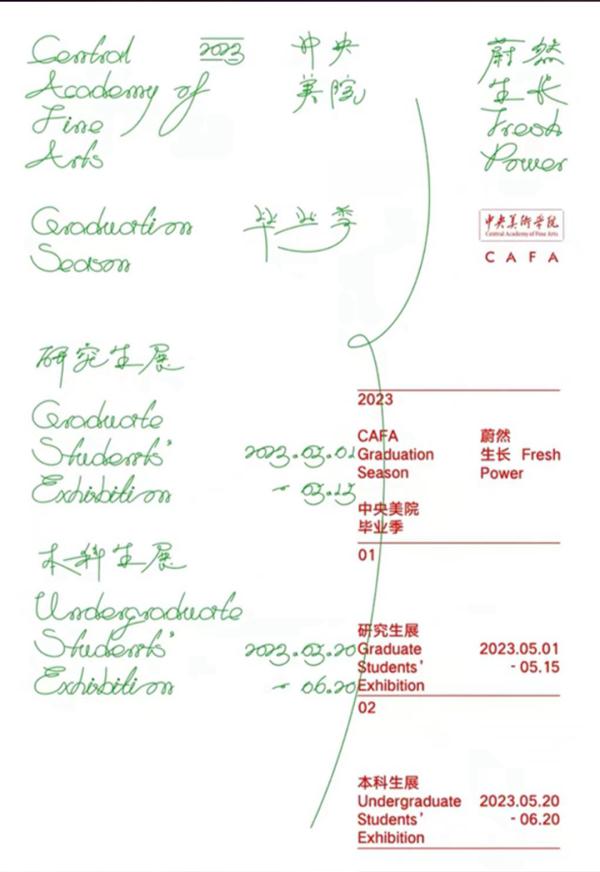 Central
Academy of
Fine
Arts
2023
中央
美院
蔚然
生长
Fresh
Power
Graduation
Season
毕业季
中央美術学院
Central Academy of Fine Arts
CAFA
研究生展
Graduate
Students'
Exhibition
2023.05.01
- 05.15
本科生展
Undergraduate
Students'
Exhibition
2023.05.20
- 06.20
2023
CAFA
Graduation
Season
蔚然
生长 Fresh
Power
中央美院
毕业季
01
研究生展
Graduate
Students'
Exhibition
2023.05.01
- 05.15
02
本科生展
Undergraduate
Students'
Exhibition
2023.05.20
- 06.20